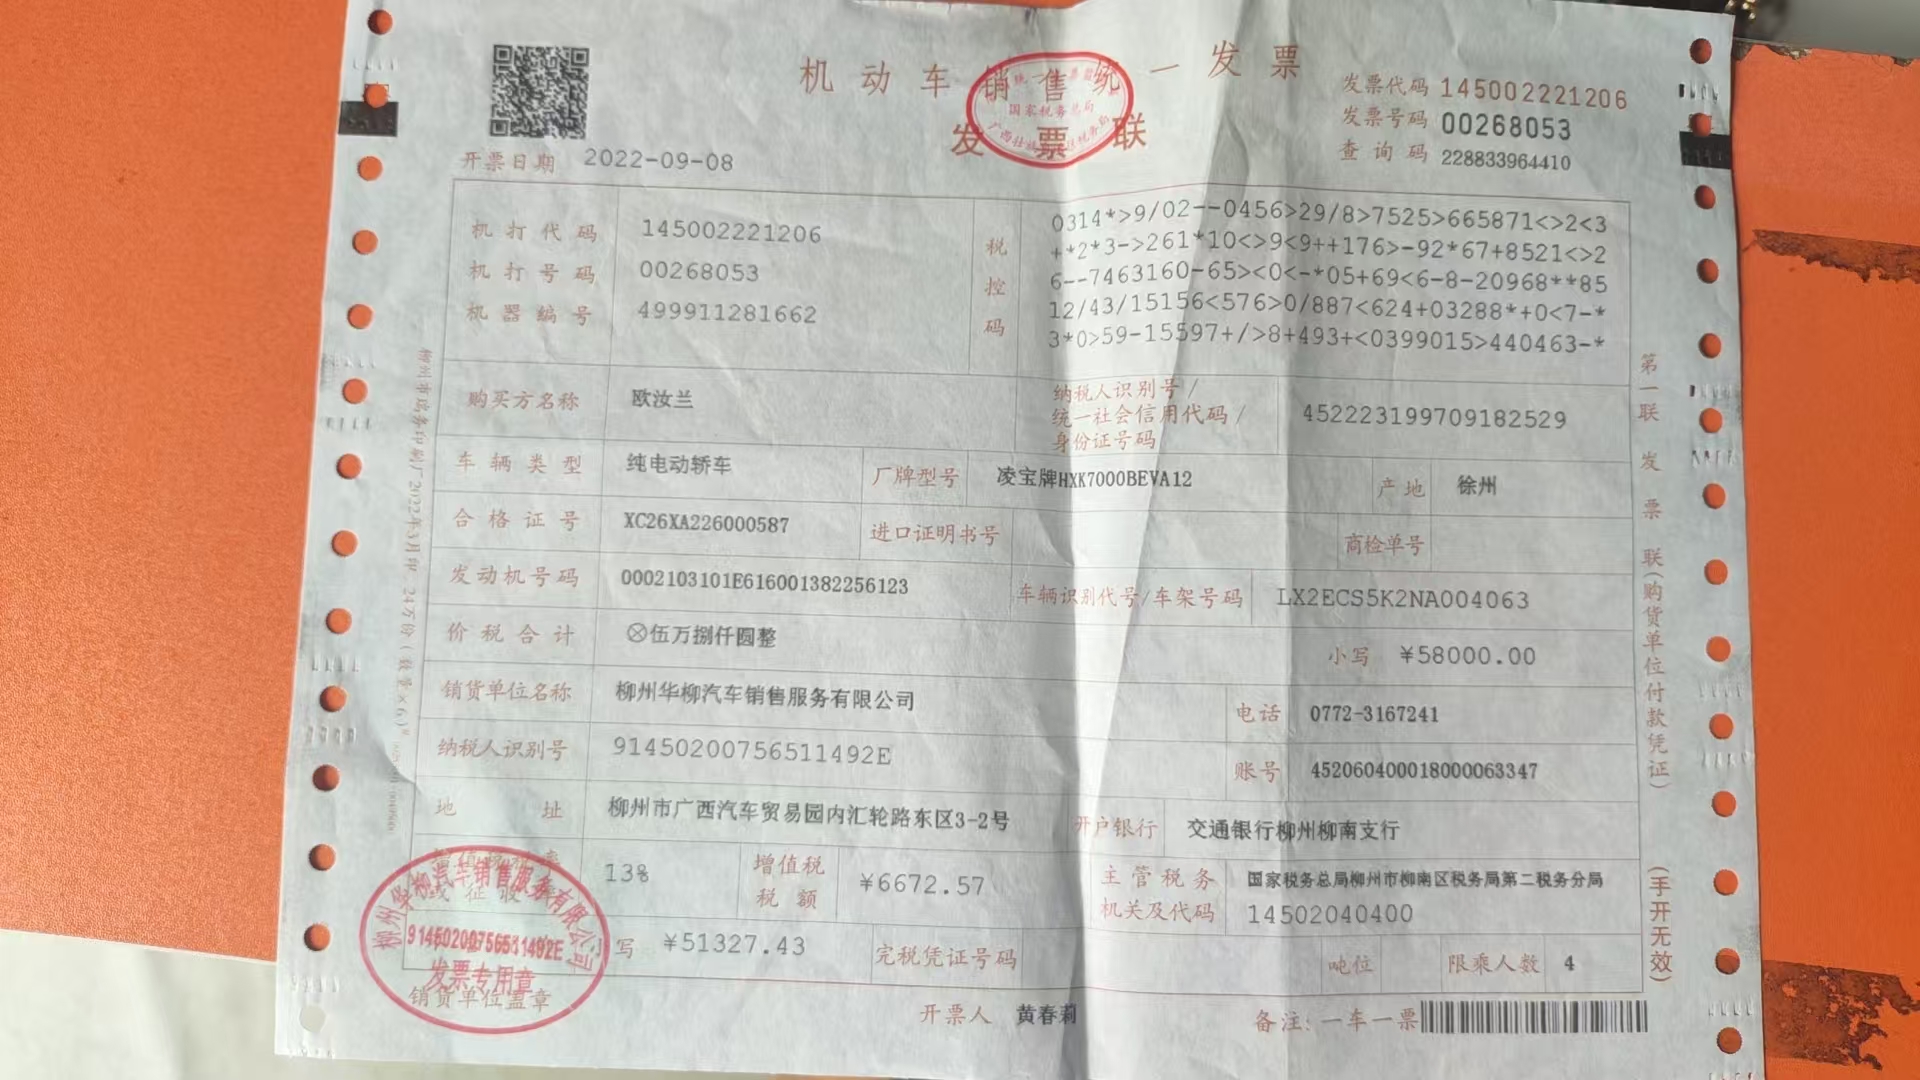 机动车销售统一发票
发票联
发票代码 145002221206
发票号码 00268053
查询码 228833964410
开票日期 2022-09-08
机打代码 145002221206
机打号码 00268053
机器编号 499911281662
税控码
0314*>9/02--0456>29/8>7525>665871<>2<3
+*2*3->261*10<>9<9++176>-92*67+8521<>2
6--7463160-65><0<-*05+69<6-8-20968**85
12/43/15156<576>0/887<624+03288*+0<7-*
3*0>59-15597+/>8+493+<0399015>440463-*
购买方名称 欧汝兰
纳税人识别号/
统一社会信用代码/
身份证号码
452223199709182529
车辆类型 纯电动轿车 厂牌型号 凌宝牌HXK7000BEVA12 产地 徐州
合格证号 XC26XA226000587 进口证明书号 商检单号
发动机号码 0002103101E616001382256123 车辆识别代号/车架号码 LX2ECS5K2NA004063
价税合计 ⊗伍万捌仟圆整 小写 ¥58000.00
销货单位名称 柳州华柳汽车销售服务有限公司 电话 0772-3167241
纳税人识别号 91450200756511492E 账号 452060400018000063347
地址 柳州市广西汽车贸易园内汇轮路东区3-2号 开户银行 交通银行柳州柳南支行
13% 增值税税额 ¥6672.57 主管税务机关及代码 国家税务总局柳州市柳南区税务局第二税务分局
14502040400
小写 ¥51327.43 完税凭证号码 吨位 限乘人数 4
销货单位盖章 开票人 黄春莉 备注:一车一票
柳州华柳汽车销售服务有限公司
91450200756511492E
发票专用章
国家税务总局
第一联 发票联(购货单位付款凭证)
(手开无效)